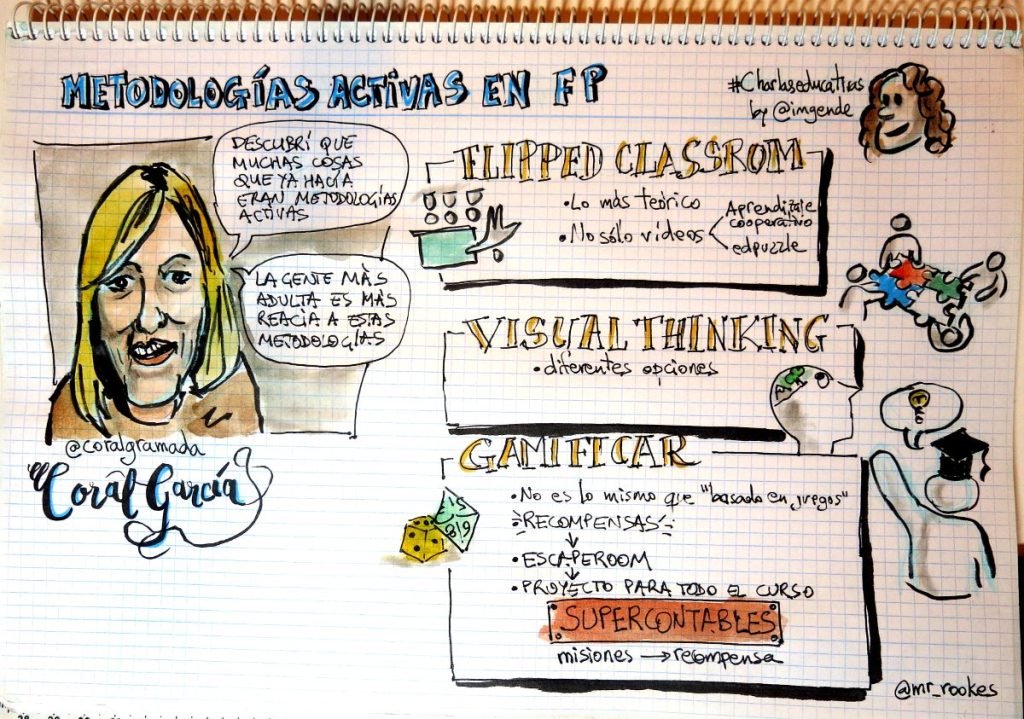 METODOLOGÍAS ACTIVAS EN FP
#Charlaseducativas
by @imgende
DESCUBRÍ QUE
MUCHAS COSAS
QUE YA HACÍA
ERAN METODOLOGÍAS
ACTIVAS
LA GENTE MÁS
ADULTA ES MÁS
REACIA A ESTAS
METODOLOGÍAS
@coralgramada
Coral García
FLIPPED CLASSROM
• Lo más teòrico
• No sólo vídeos
Aprendizaje
cooperativo
edpuzzle
VISUAL THINKING
• diferentes opciones
GAMIFICAR
• No es lo mismo que "basado en juegos"
RECOMPENSAS
• ESCAPEROOM
• PROYECTO PARA TODO EL CURSO
SUPERCONTABLES
misiones → recompensa
@mr_rookes